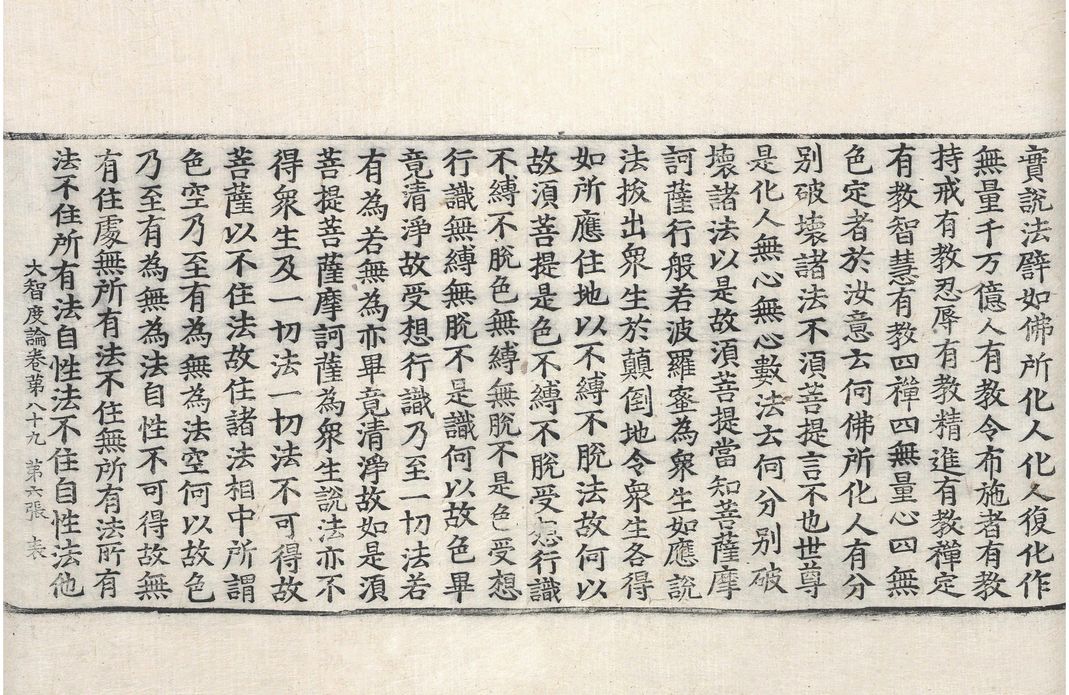 實說法譬如佛所化人化人復化作
無量千万億人有教令布施者有教
持戒有教忍辱有教精進有教禪定
有教智慧有教四禪四無量心四無
色定者於汝意云何佛所化人有分
別破壞諸法不須菩提言不也世尊
是化人無心無心數法云何分別破
壞諸法以是故須菩提當知菩薩摩
訶薩行般若波羅蜜為衆生如應說
法拔出衆生於顛倒地令衆生各得
如所應住地以不縛不脫法故何以
故須菩提是色不縛不脫受想行識
不縛不脫色無縛無脫不是色受想
行識無縛無脫不是識何以故色畢
竟清淨故受想行識乃至一切法若
有為若無為亦畢竟清淨故如是須
菩提菩薩摩訶薩為衆生說法亦不
得衆生及一切法一切法不可得故
菩薩以不住法故住諸法相中所謂
色空乃至有為無為法空何以故色
乃至有為無為法自性不可得故無
有住處無所有法不住無所有法所有
法不住所有法自性法不住自性法他
大智度論卷第八十九 第六張 表